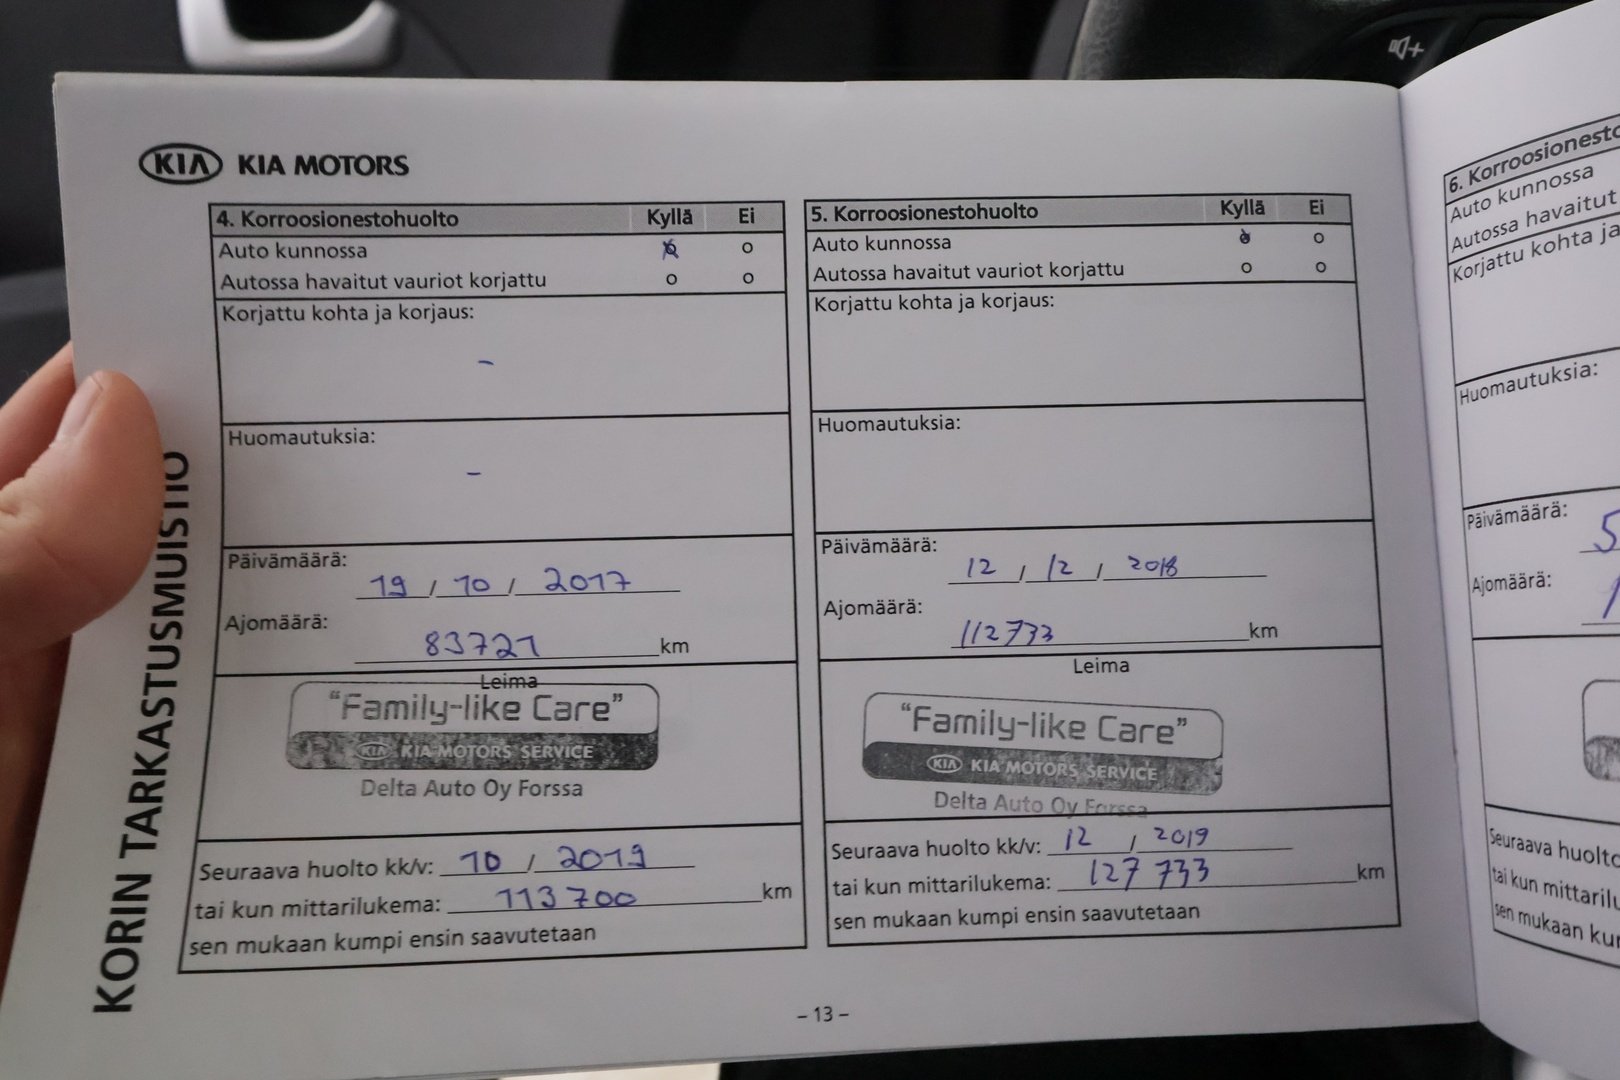 KIA KIA MOTORS
KORIN TARKASTUSMUISTIO
4. Korroosionestohuolto Kyllä Ei
Auto kunnossa
Autossa havaitut vauriot korjattu
Korjattu kohta ja korjaus:
-
Huomautuksia:
-
Päivämäärä:
19 / 10 / 2017
Ajomäärä:
83721 km
Leima
"Family-like Care"
KIA KIA MOTORS SERVICE
Delta Auto Oy Forssa
Seuraava huolto kk/v: 10 / 2019
tai kun mittarilukema: 113700 km
sen mukaan kumpi ensin saavutetaan
5. Korroosionestohuolto Kyllä Ei
Auto kunnossa
Autossa havaitut vauriot korjattu
Korjattu kohta ja korjaus:
Huomautuksia:
Päivämäärä:
12 / 12 / 2018
Ajomäärä:
112733 km
Leima
"Family-like Care"
KIA KIA MOTORS SERVICE
Delta Auto Oy Forssa
Seuraava huolto kk/v: 12 / 2019
tai kun mittarilukema: 127733 km
sen mukaan kumpi ensin saavutetaan
- 13 -
6. Korroosionesto
Auto kunnossa
Autossa havaitut
Korjattu kohta ja
Huomautuksia:
Päivämäärä:
5
Ajomäärä:
1
Seuraava huolto
tai kun mittarilu
sen mukaan ku